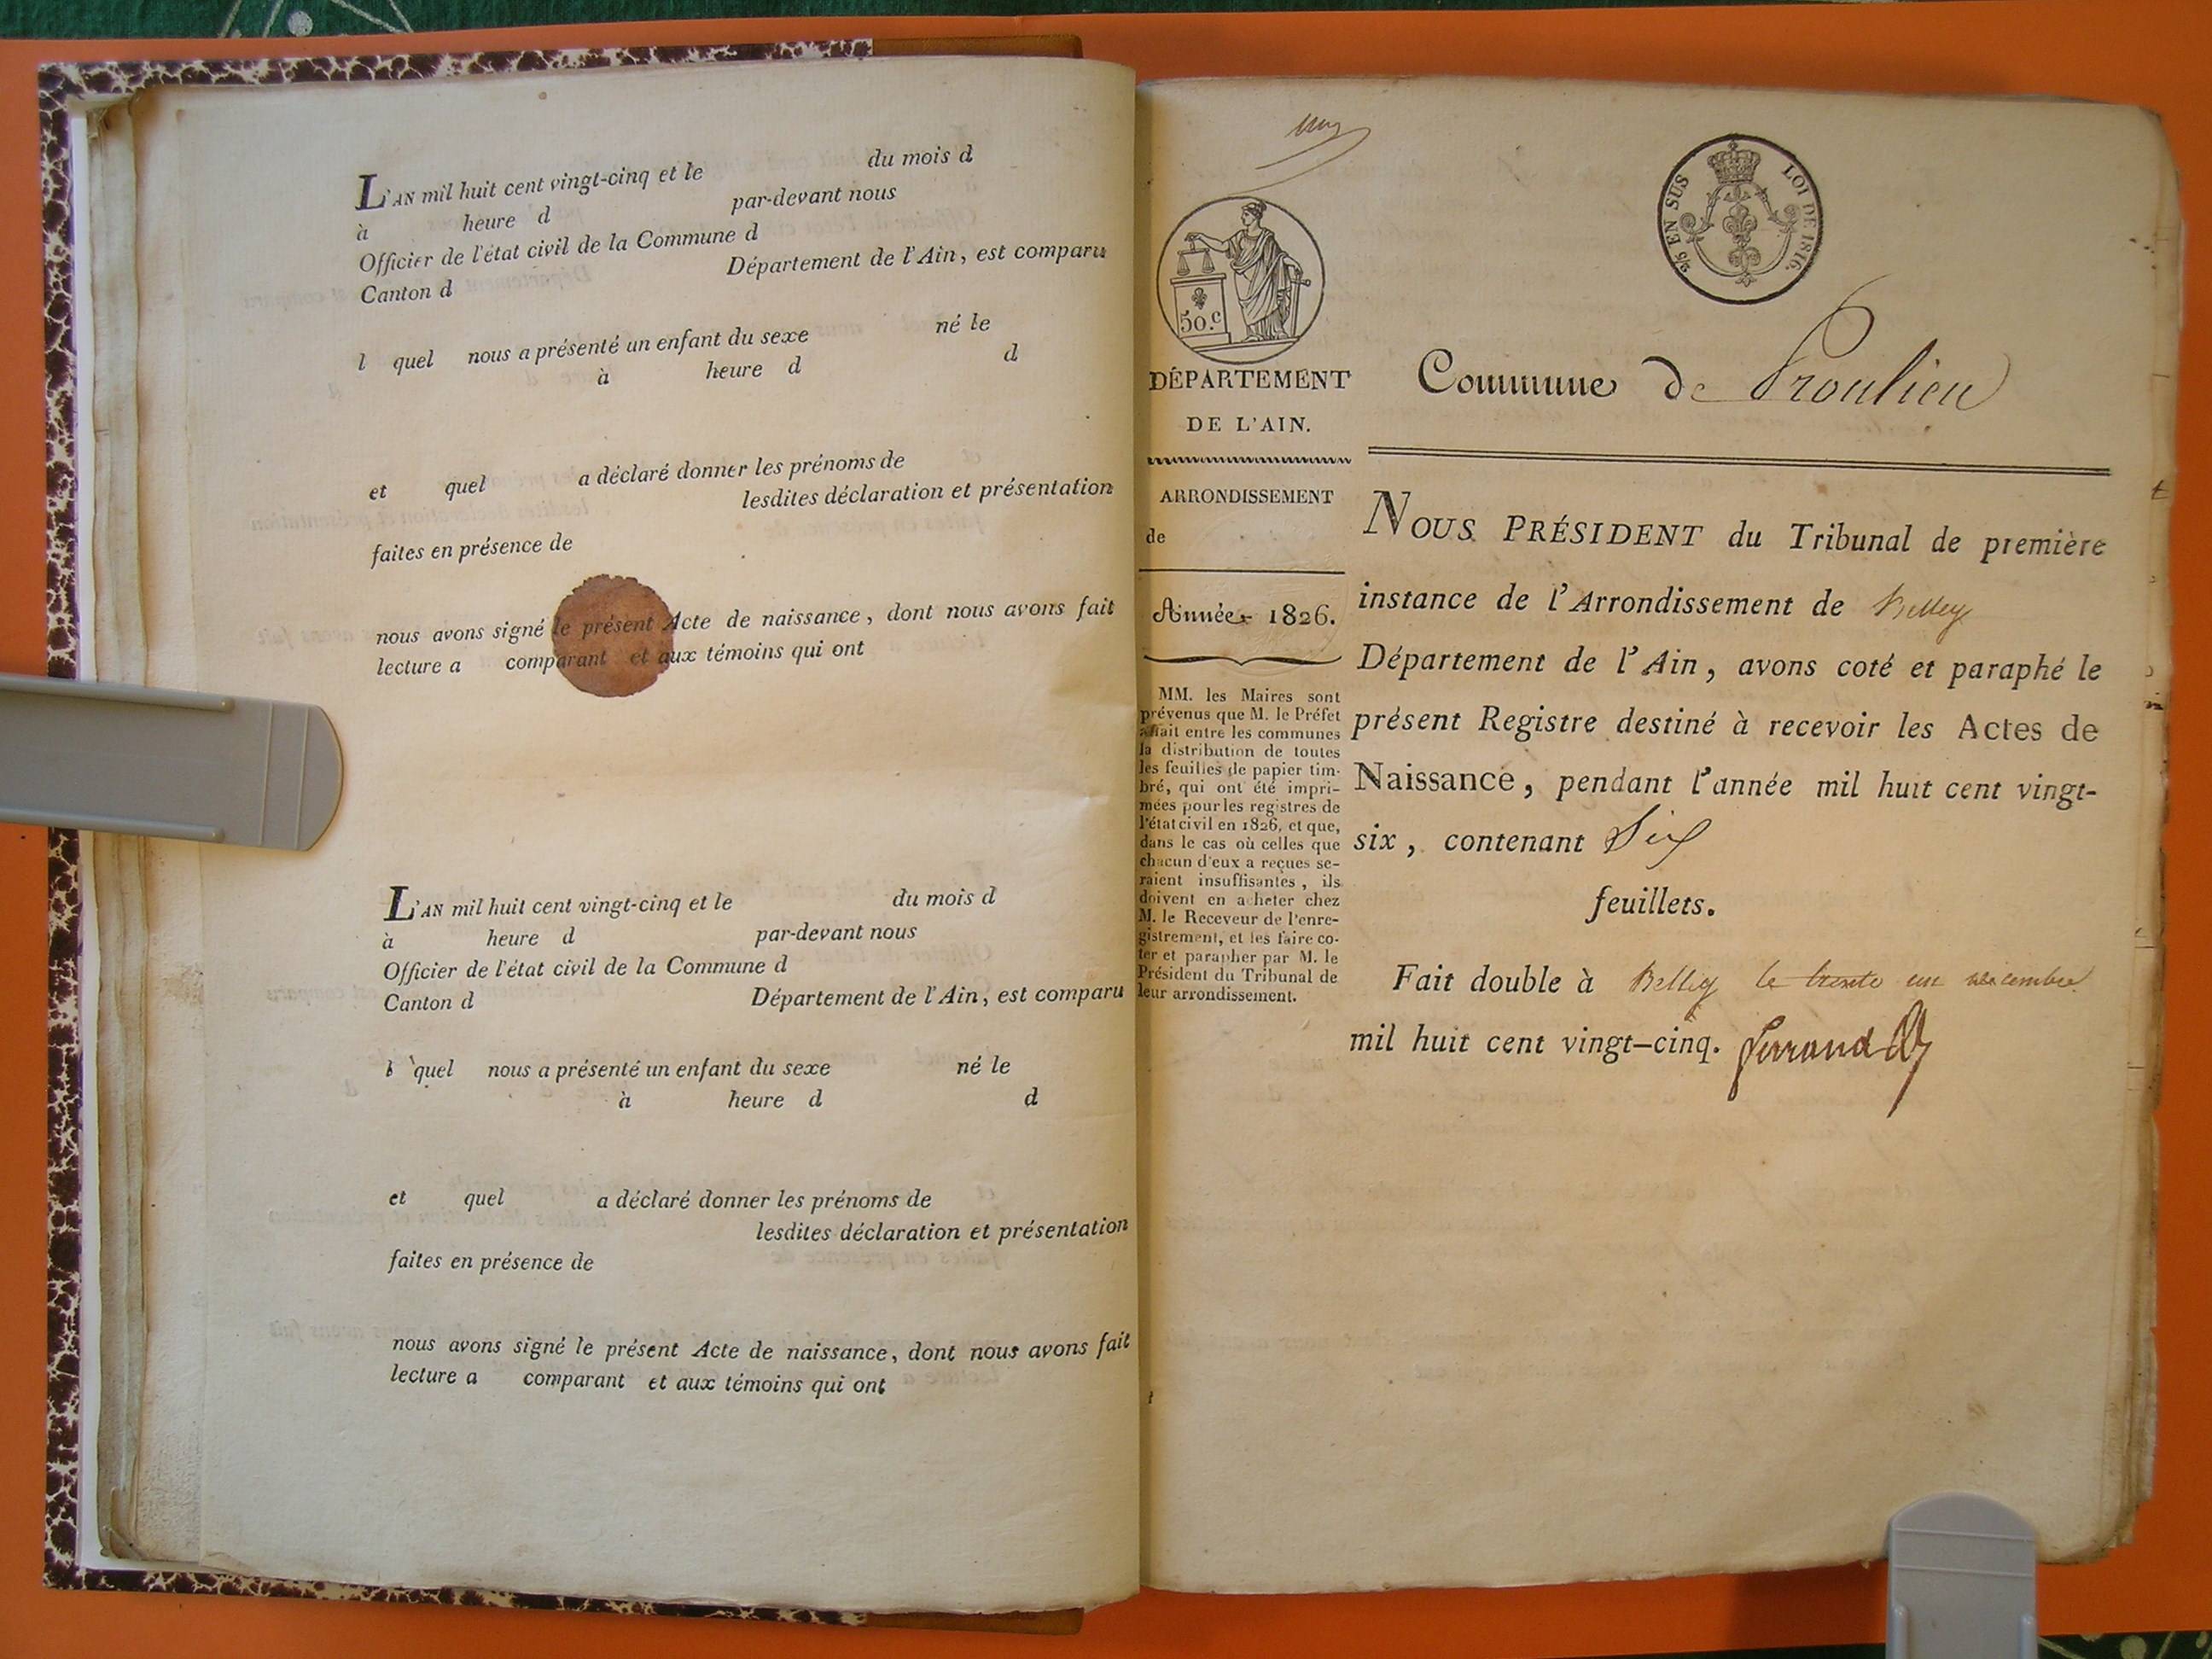 L'AN mil huit cent vingt-cinq et le du mois d
à heure d par-devant nous
Officier de l'état civil de la Commune d
Canton d Département de l'Ain, est comparu
l quel nous a présenté un enfant du sexe né le
à heure d d
et quel a déclaré donner les prénoms de
lesdites déclaration et présentation
faites en présence de
nous avons signé le présent Acte de naissance, dont nous avons fait
lecture a comparant et aux témoins qui ont
L'AN mil huit cent vingt-cinq et le du mois d
à heure d par-devant nous
Officier de l'état civil de la Commune d
Canton d Département de l'Ain, est comparu
l quel nous a présenté un enfant du sexe né le
à heure d d
et quel a déclaré donner les prénoms de
lesdites déclaration et présentation
faites en présence de
nous avons signé le présent Acte de naissance, dont nous avons fait
lecture a comparant et aux témoins qui ont
2/5 EN SUS LOI DE 1816.
50.c
DÉPARTEMENT
DE L'AIN.
ARRONDISSEMENT
de
Année 1826.
MM. les Maires sont
prévenus que M. le Préfet
a fait entre les communes
la distribution de toutes
les feuilles de papier tim-
bré, qui ont été impri-
mées pour les registres de
l'état civil en 1826, et que,
dans le cas où celles que
chacun d'eux a reçues se-
raient insuffisantes, ils
doivent en acheter chez
M. le Receveur de l'enre-
gistrement, et les faire co-
ter et parapher par M. le
Président du Tribunal de
leur arrondissement.
Commune de Proulieu
NOUS PRÉSIDENT du Tribunal de première
instance de l'Arrondissement de Belley
Département de l'Ain, avons coté et paraphé le
présent Registre destiné à recevoir les Actes de
Naissance, pendant l'année mil huit cent vingt-
six, contenant Six
feuillets.
Fait double à Belley le trente un décembre
mil huit cent vingt-cinq.